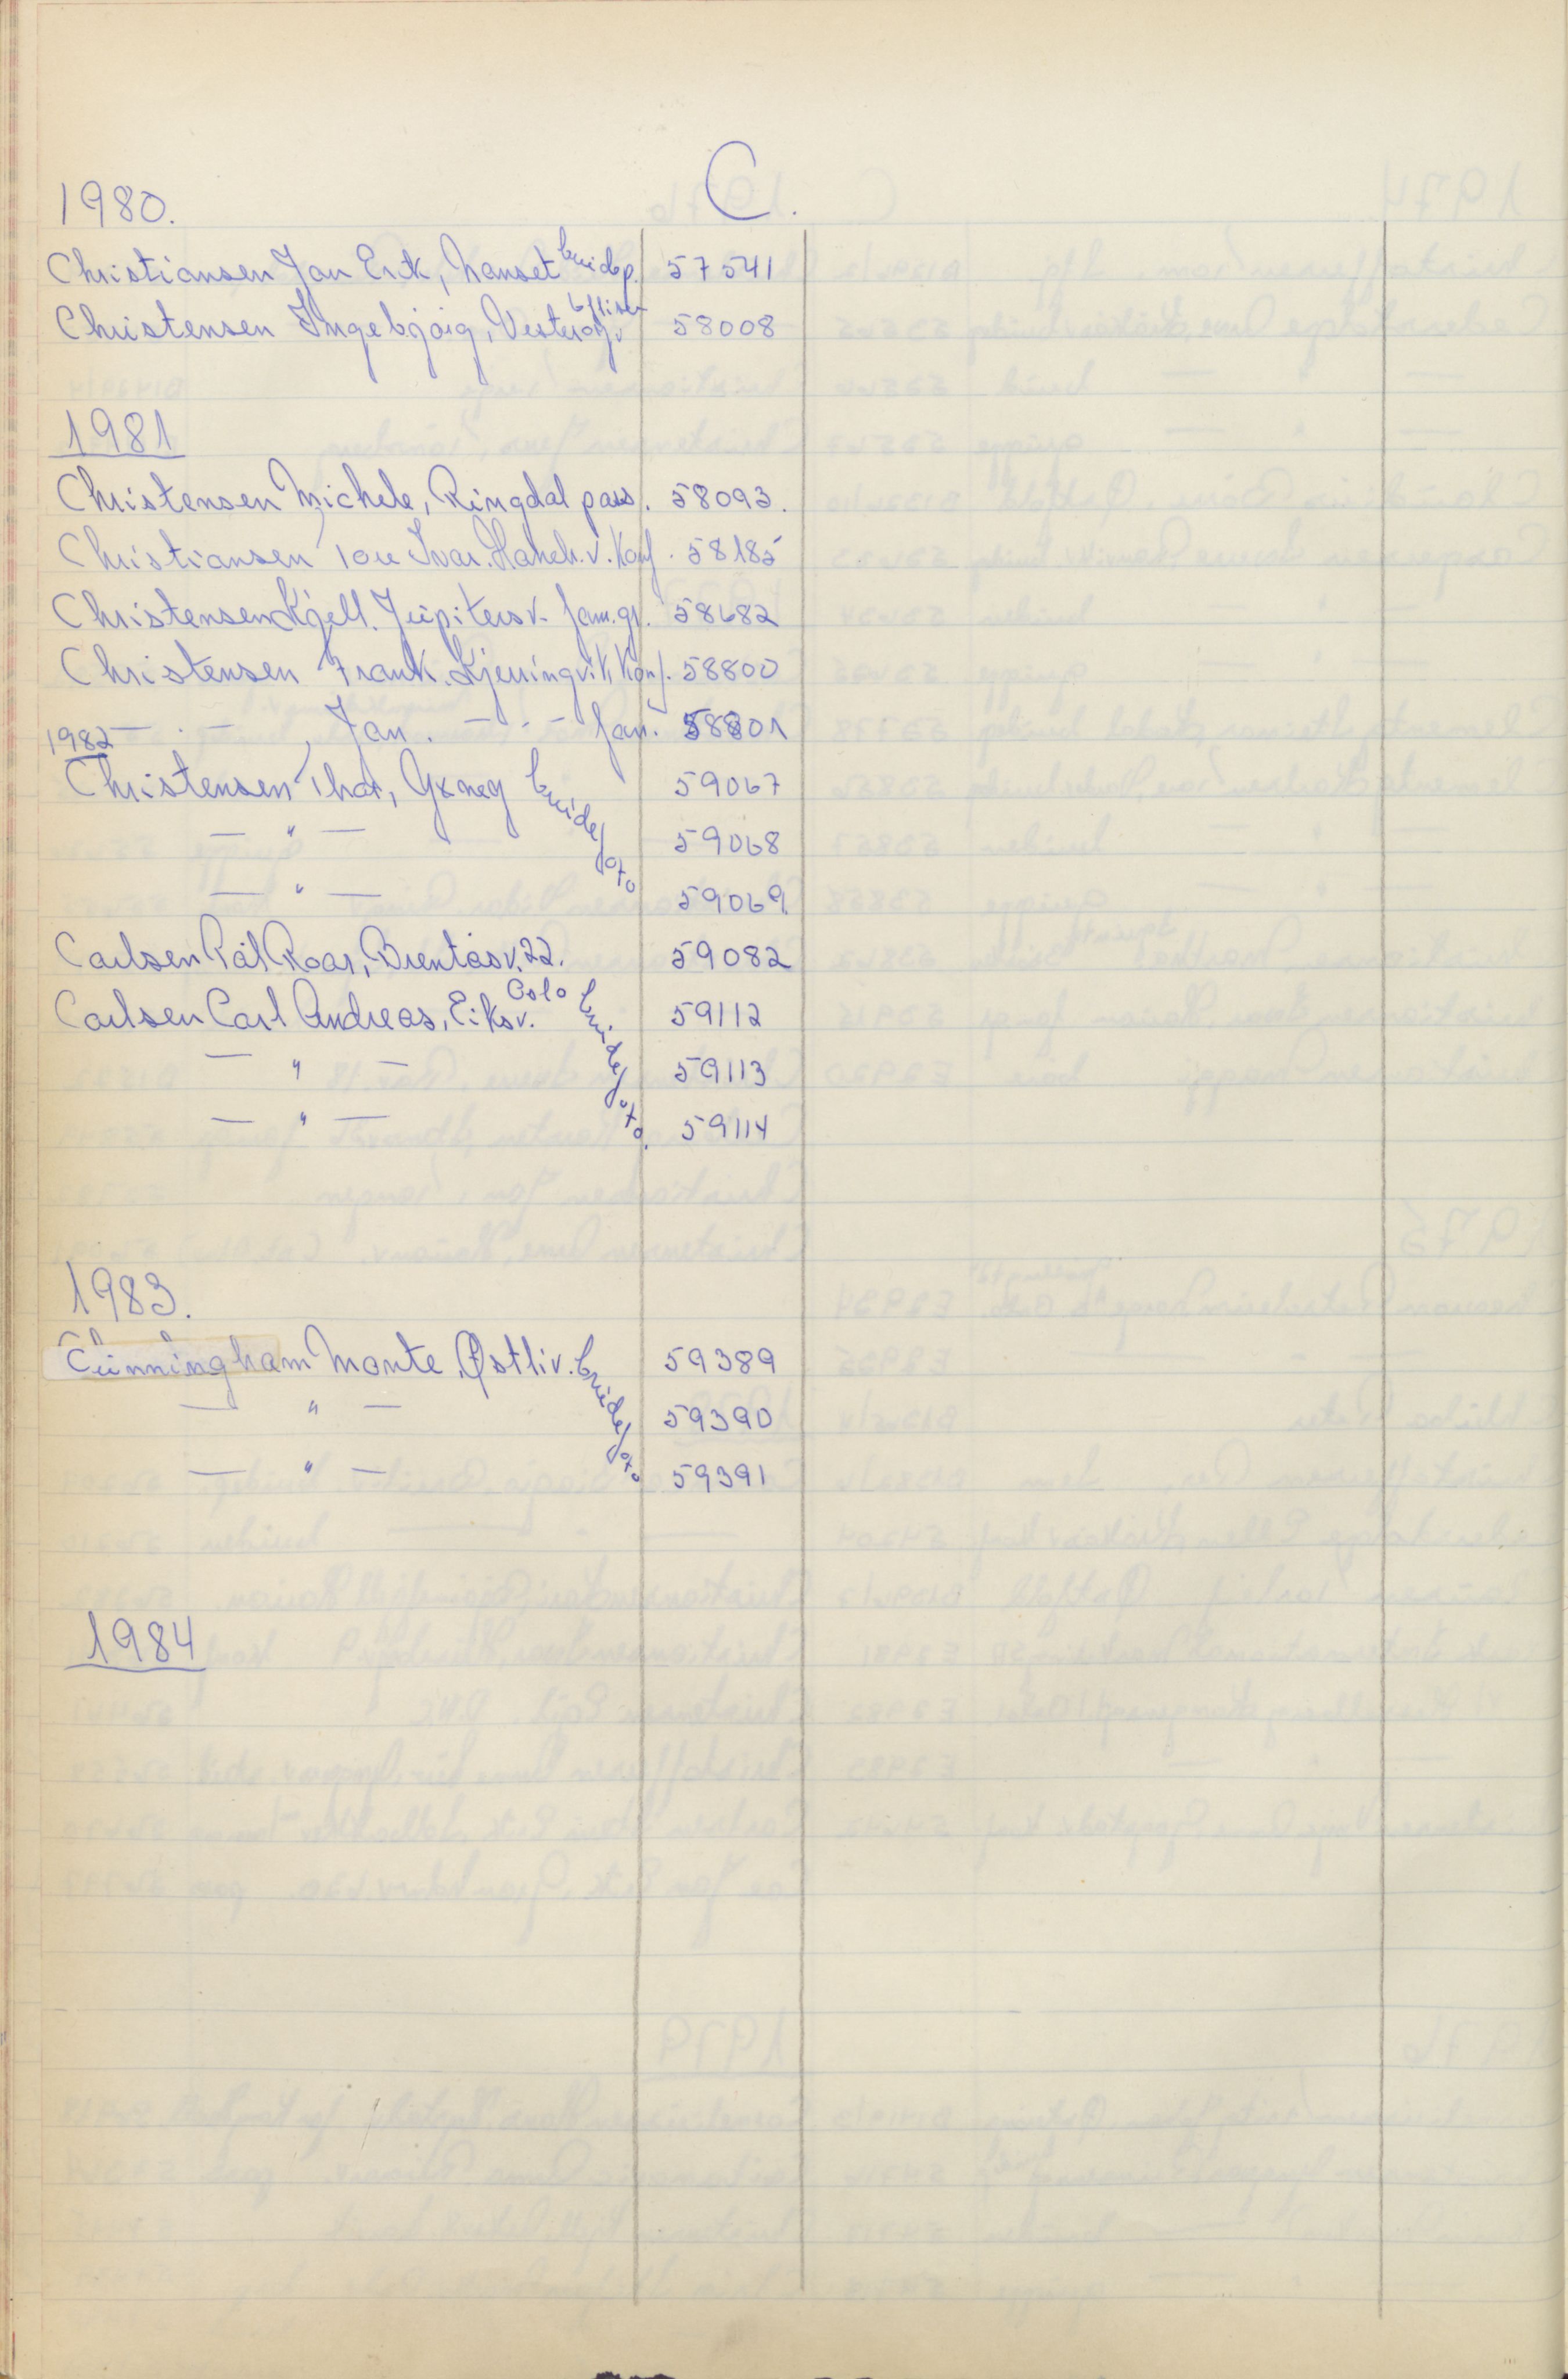 C.
1980.
Christiansen Jan Erik, Nanset brudep. 57541
Christensen Ingebjørg, Vesterøyv. 58008
1981
Christensen Michele, Ringdal pass. 58093.
Christiansen Tore Ivar. Haneh.v. Konf. 58185
Christensen Kjell. Jupitersv. fam.gr. 58682
Christensen Frank. Kjerringvik, Konf. 58800
— · — , Jan. — · · — fam. 58801
1982
Christensen Thor, Gxneg brudefoto 59067
— " — 59068
— " — 59069
Carlsen Pål Roar, Brentåsv. 22. 59082
Oslo
Carlsen Carl Andreas, Eiksv. brudefoto. 59112
— " — 59113
— " — 59114
1983.
Cunningham Monte, Østliv. brudefoto 59389
— " — 59390
— " — 59391
1984